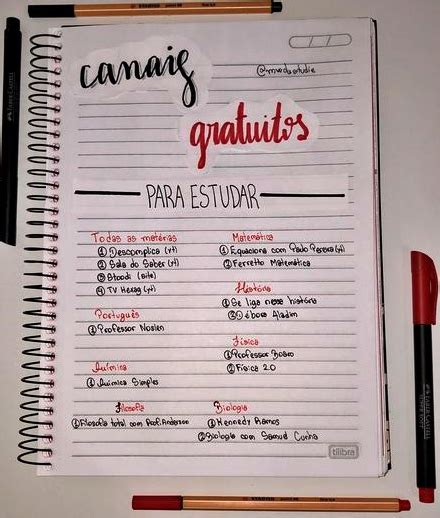 canais
gratuitos
PARA ESTUDAR
Todas as matérias
① Descomplica (yt)
② Sala do Saber (yt)
③ Stoodi (site)
④ TV Hexag (yt)
Matemática
① Equaciona com Paulo Pereira (yt)
② Ferretto Matemática
História
① Se liga nessa história
② é bora Aladim
Português
① Professor Noslen
Física
① Professor Boaro
② Física 2.0
Química
① Química Simples
Filosofia
① Filosofia total com Prof. Anderson
Biologia
① Kennedy Ramos
② Biologia com Samuel Cunha
tilibra
FABER-CASTELL